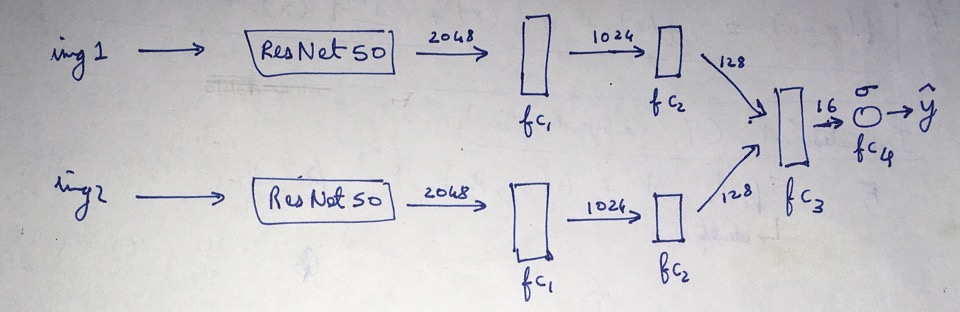 img 1 ResNet 50 2048 fc1 1024 fc2 128
fc3 16 σ fc4 ŷ
img2 ResNet 50 2048 fc1 1024 fc2 128